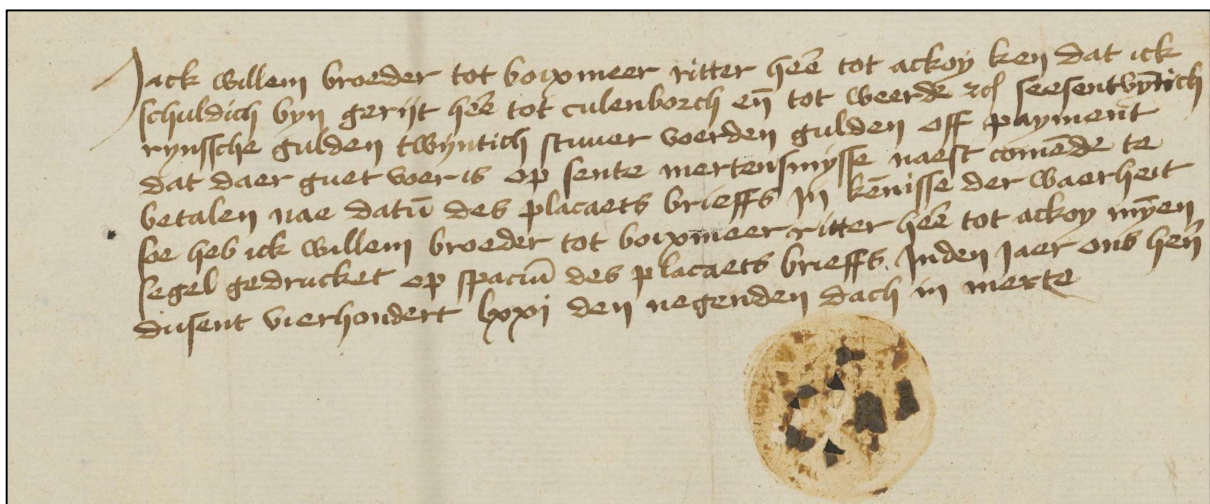 Jack willem broeder tot boixmeer ritter hẽe tot ackoy ken dat ick
schuldich byn gerijt hẽe tot culenborch eñ tot weerde seesentwyñtich
rynssche gulden twyntich stuuer voerden gulden off payment
dat daer guet voer is op sente mertensmysse naest comẽde te
betalen nae datũ des placaets brieffs In kẽnisse der waerheit
soe heb ick willem broeder tot boixmeer ritter hẽe tot ackoy mỹen
segel gedrucket op spaciũ des placaets brieffs Inden Jaer ons heñ
dusent vierhondert lxxi den negenden dach in merte